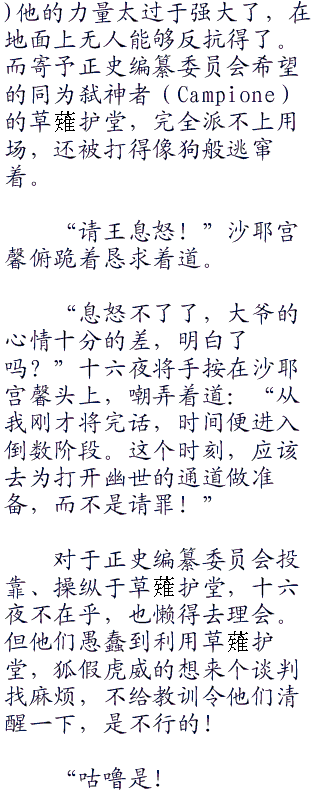 )他的力量太过于强大了，在
地面上无人能够反抗得了。
而寄予正史编纂委员会希望
的同为弑神者（Campione）
的草薙护堂，完全派不上用
场，还被打得像狗般逃窜
着。
“请王息怒！”沙耶宫
馨俯跪着恳求着道。
“息怒不了了，大爷的
心情十分的差，明白了
吗？”十六夜将手按在沙耶
宫馨头上，嘲弄着道：“从
我刚才将完话，时间便进入
倒数阶段。这个时刻，应该
去为打开幽世的通道做准
备，而不是请罪！”
对于正史编纂委员会投
靠、操纵于草薙护堂，十六
夜不在乎，也懒得去理会。
但他们愚蠢到利用草薙护
堂，狐假虎威的想来个谈判
找麻烦，不给教训令他们清
醒一下，是不行的！
“咕噜是！